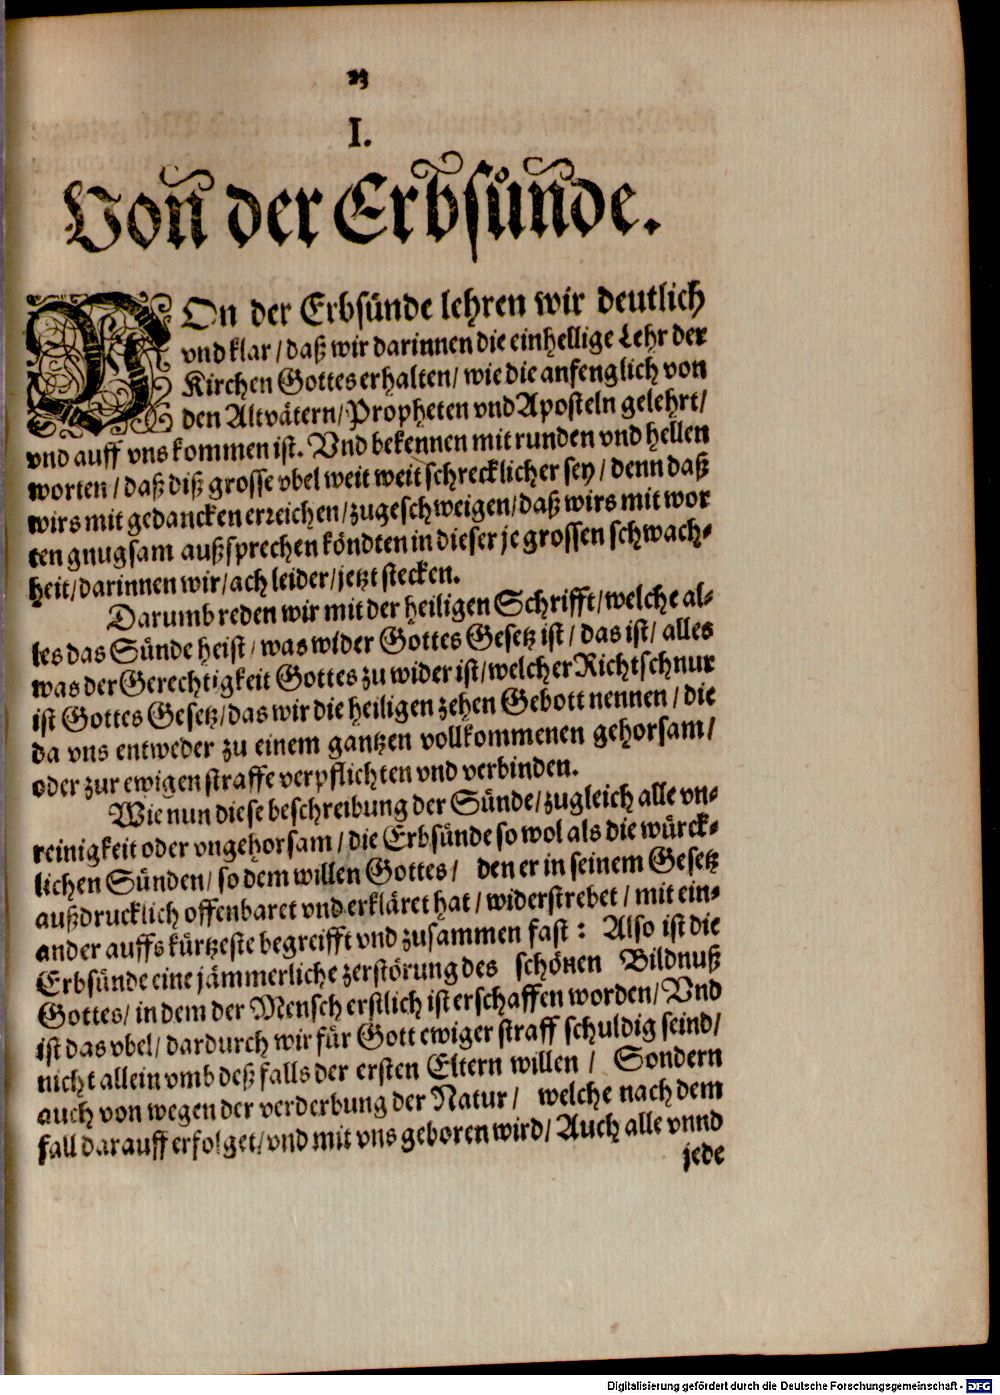 23
I.
Von der Erbsünde.
VOn der Erbsünde lehren wir deutlich
vnd klar / daß wir darinnen die einhellige Lehr der
Kirchen Gottes erhalten / wie die anfenglich von
den Altvätern / Propheten vnd Aposteln gelehrt /
vnd auff vns kommen ist. Vnd bekennen mit runden vnd hellen
worten / daß diß grosse vbel weit weit schrecklicher sey / denn daß
wirs mit gedancken erreichen / zugeschweigen / daß wirs mit wor
ten gnugsam außsprechen köndten in dieser je grossen schwach-
heit / darinnen wir / ach leider / jetzt stecken.
Darumb reden wir mit der heiligen Schrifft / welche al-
les das Sünde heist / was wider Gottes Gesetz ist / das ist / alles
was der Gerechtigkeit Gottes zu wider ist / welcher Richtschnur
ist Gottes Gesetz / das wir die heiligen zehen Gebott nennen / die
da vns entweder zu einem gantzen vollkommenen gehorsam /
oder zur ewigen straffe verpflichten vnd verbinden.
Wie nun diese beschreibung der Sünde / zugleich alle vn-
reinigkeit oder vngehorsam / die Erbsünde so wol als die würck-
lichen Sünden / so dem willen Gottes / den er in seinem Gesetz
außdrucklich offenbaret vnd erkläret hat / widerstrebet / mit ein-
ander auffs kürtzeste begreifft vnd zusammen fast : Also ist die
Erbsünde eine jämmerliche zerstörung des schönen Bildnuß
Gottes / in dem der Mensch erstlich ist erschaffen worden / Vnd
ist das vbel / dardurch wir für Gott ewiger straff schuldig seind /
nicht allein vmb deß falls der ersten Eltern willen / Sondern
auch von wegen der verderbung der Natur / welche nach dem
fall darauff erfolget / vnd mit vns geboren wird / Auch alle vnnd
jede
Digitalisierung gefördert durch die Deutsche Forschungsgemeinschaft - DFG